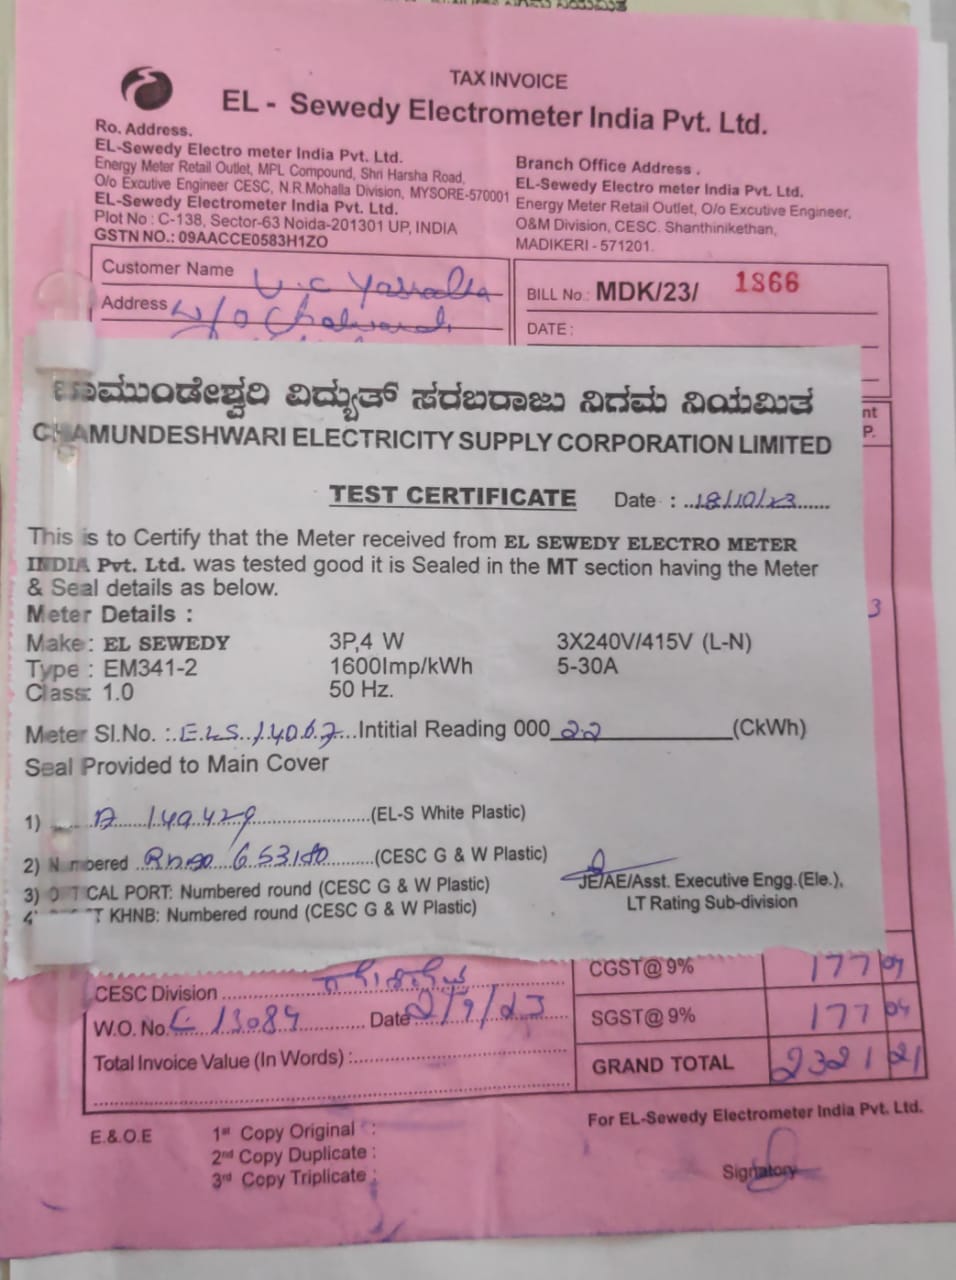 TAX INVOICE
EL - Sewedy Electrometer India Pvt. Ltd.
Ro. Address.
EL-Sewedy Electro meter India Pvt. Ltd.
Energy Meter Retail Outlet, MPL Compound, Shri Harsha Road,
O/o Excutive Engineer CESC, N.R.Mohalla Division, MYSORE-570001
EL-Sewedy Electrometer India Pvt. Ltd.
Plot No : C-138, Sector-63 Noida-201301 UP, INDIA
GSTN NO.: 09AACCE0583H1ZO
Branch Office Address .
EL-Sewedy Electro meter India Pvt. Ltd.
Energy Meter Retail Outlet, O/o Excutive Engineer,
O&M Division, CESC. Shanthinikethan,
MADIKERI - 571201.
Customer Name
Address
BILL No.: MDK/23/ 1866
DATE :
nt
P.
3
ಚಾಮುಂಡೇಶ್ವರಿ ವಿದ್ಯುತ್ ಸರಬರಾಜು ನಿಗಮ ನಿಯಮಿತ
CHAMUNDESHWARI ELECTRICITY SUPPLY CORPORATION LIMITED
TEST CERTIFICATE Date : 18/10/23
This is to Certify that the Meter received from EL SEWEDY ELECTRO METER
INDIA Pvt. Ltd. was tested good it is Sealed in the MT section having the Meter
& Seal details as below.
Meter Details :
Make : EL SEWEDY 3P,4 W 3X240V/415V (L-N)
Type : EM341-2 1600Imp/kWh 5-30A
Class: 1.0 50 Hz.
Meter Sl.No. : ELS 14067 Intitial Reading 000 22 (CkWh)
Seal Provided to Main Cover
1) 149429 (EL-S White Plastic)
2) Numbered 653180 (CESC G & W Plastic)
3) OPTICAL PORT: Numbered round (CESC G & W Plastic)
KHNB: Numbered round (CESC G & W Plastic)
JE/AE/Asst. Executive Engg.(Ele.),
LT Rating Sub-division
CESC Division
W.O. No. C 13089 Date 2/9/23
Total Invoice Value (In Words) :
CGST@ 9% 177 04
SGST@ 9% 177 04
GRAND TOTAL 2321 21
For EL-Sewedy Electrometer India Pvt. Ltd.
E.&.O.E
1st Copy Original :
2nd Copy Duplicate :
3rd Copy Triplicate :
Signatory